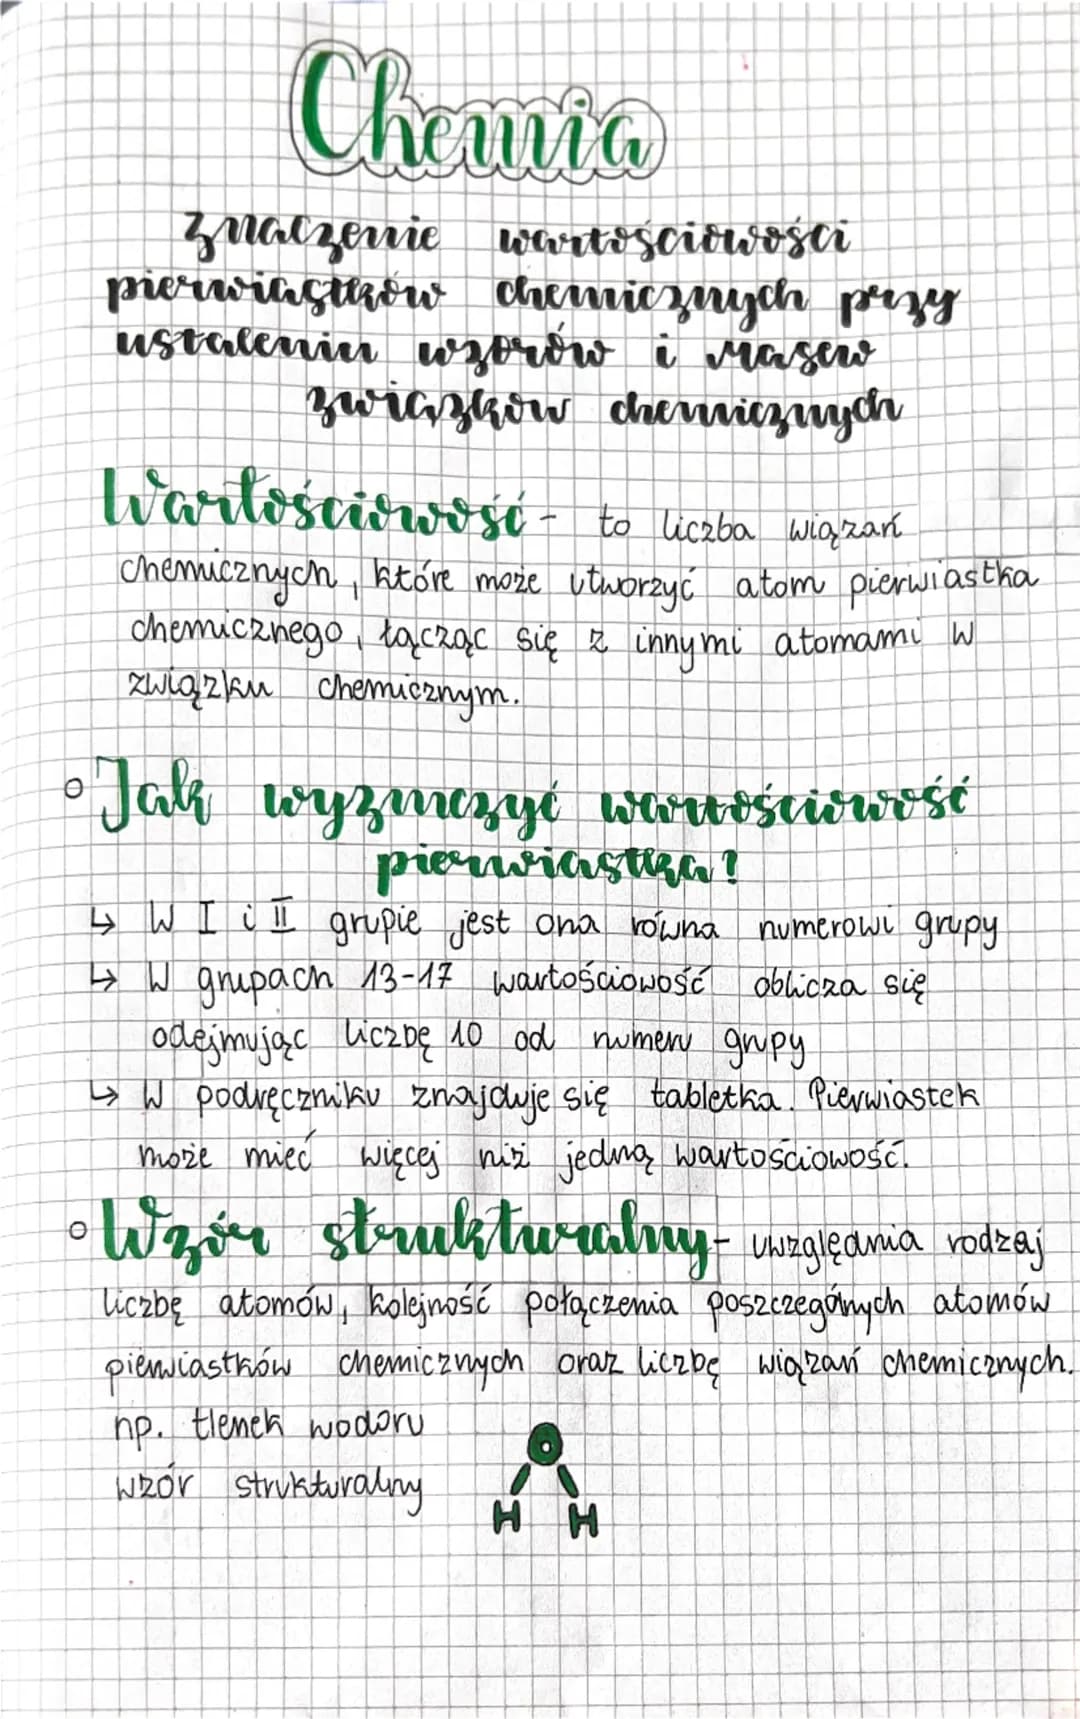 Chemia
znaczenie wartościowości
pierwiastków chemicznych przy
ustaleniu wzorów i nasew
związków chemicznych
Wartościowość - to liczba wiązań
chemicznych, które może utworzyć atom pierwiastka
chemicznego, łącząc się z innymi atomami w
związku chemicznym.
° Jak wyznaczyć wartościowość
pierwiastka?
↳ W I i II grupie jest ona równa numerowi grupy
↳ W grupach 13-17 wartościowość oblicza się
odejmując liczbę 10 od numeru grupy
↳ W podręczniku znajduje się tabletka. Pierwiastek
może mieć więcej niż jedną wartościowość.
° Wzór strukturalny - uwzględnia rodzaj
liczbę atomów, kolejność połączenia poszczególnych atomów
pierwiastków chemicznych oraz liczbę wiązań chemicznych.
np. tlenek wodoru
wzór strukturalny
O
H H